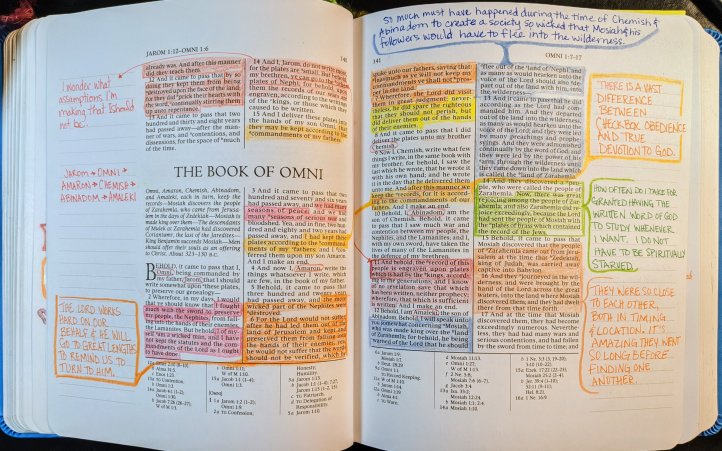 So much must have happened during the time of Chemish &
Abinadom to create a society so wicked that Mosiah & his
followers would have to flee into the wilderness.
JAROM 1:12–OMNI 1:6
already was. And after this manner
did they teach them.
12 And it came to pass that by so
doing they kept them from being
destroyed upon the face of the land;
for they did prick their hearts with
the word, continually stirring them
up unto repentance.
13 And it came to pass that two
hundred and thirty and eight years
had passed away—after the manner
of wars, and contentions, and
dissensions, for the space of much
of the time.
14 And I, Jarom, do not write more,
for the plates are small. But behold,
my brethren, ye can go to the other
plates of Nephi; for behold, upon
them the records of our wars are
engraven, according to the writings
of the kings, or those which they
caused to be written.
15 And I deliver these plates into
the hands of my son Omni, that
they may be kept according to the
commandments of my fathers.
I wonder what
assumptions I'm
making that I should
not be.
JAROM → OMNI →
AMARON → CHEMISH →
ABINADOM → AMALEKI
THE LORD WORKS
HARD ON OUR
BEHALF & HE WILL
GO TO GREAT LENGTHS
TO REMIND US TO
TURN TO HIM.
THE BOOK OF OMNI
Omni, Amaron, Chemish, Abinadom,
and Amaleki, each in turn, keep the
records—Mosiah discovers the people
of Zarahemla, who came from Jerusalem
in the days of Zedekiah—Mosiah is
made king over them—The descendants
of Mulek at Zarahemla had discovered
Coriantumr, the last of the Jaredites—
King Benjamin succeeds Mosiah—Men
should offer their souls as an offering
to Christ. About 323–130 B.C.
BEHOLD, it came to pass that I,
Omni, being commanded by
my father, Jarom, that I should
write somewhat upon these plates,
to preserve our genealogy—
2 Wherefore, in my days, I would
that ye should know that I fought
much with the sword to preserve
my people, the Nephites, from falling
into the hands of their enemies,
the Lamanites. But behold, I of myself
am a wicked man, and I have
not kept the statutes and the commandments
of the Lord as I ought
to have done.
3 And it came to pass that two
hundred and seventy and six years
had passed away, and we had many
seasons of peace; and we had
many seasons of serious war and
bloodshed. Yea, and in fine, two hundred
and eighty and two years had
passed away, and I had kept these
plates according to the commandments
of my fathers; and I conferred
them upon my son Amaron.
And I make an end.
4 And now I, Amaron, write the
things whatsoever I write, which
are few, in the book of my father.
5 Behold, it came to pass that
three hundred and twenty years
had passed away, and the more
wicked part of the Nephites were
destroyed.
6 For the Lord would not suffer,
after he had led them out of the
land of Jerusalem and kept and
preserved them from falling into
the hands of their enemies, yea,
he would not suffer that the words
should not be verified, which he
141
OMNI 1:7–17
spoke unto our fathers, saying that:
Inasmuch as ye will not keep my
commandments ye shall not prosper
in the land.
7 Wherefore, the Lord did visit
them in great judgment; nevertheless,
he did spare the righteous
that they should not perish, but
did deliver them out of the hands
of their enemies.
8 And it came to pass that I did
deliver the plates unto my brother
Chemish.
9 Now I, Chemish, write what few
things I write, in the same book with
my brother; for behold, I saw the
last which he wrote, that he wrote it
with his own hand; and he wrote
it in the day that he delivered them
unto me. And after this manner we
keep the records, for it is according
to the commandments of our
fathers. And I make an end.
10 Behold, I, Abinadom, am the
son of Chemish. Behold, it came
to pass that I saw much war and
contention between my people, the
Nephites, and the Lamanites; and I,
with my own sword, have taken the
lives of many of the Lamanites in
the defence of my brethren.
11 And behold, the record of this
people is engraven upon plates
which is had by the kings, according
to the generations; and I know
of no revelation save that which
has been written, neither prophecy;
wherefore, that which is sufficient
is written. And I make an end.
12 Behold, I am Amaleki, the son of
Abinadom. Behold, I will speak unto
you somewhat concerning Mosiah,
who was made king over the land
of Zarahemla; for behold, he being
warned of the Lord that he should
flee out of the land of Nephi, and
as many as would hearken unto the
voice of the Lord should also depart
out of the land with him, into
the wilderness—
13 And it came to pass that he did
according as the Lord had commanded
him. And they departed
out of the land into the wilderness,
as many as would hearken unto the
voice of the Lord; and they were led
by many preachings and prophesyings.
And they were admonished
continually by the word of God; and
they were led by the power of his
arm, through the wilderness until
they came down into the land which
is called the land of Zarahemla.
14 And they discovered a people,
who were called the people of
Zarahemla. Now, there was great
rejoicing among the people of Zarahemla;
and also Zarahemla did rejoice
exceedingly, because the Lord
had sent the people of Mosiah with
the plates of brass which contained
the record of the Jews.
15 Behold, it came to pass that
Mosiah discovered that the people
of Zarahemla came out from Jerusalem
at the time that Zedekiah,
king of Judah, was carried away
captive into Babylon.
16 And they journeyed in the
wilderness, and were brought by
the hand of the Lord across the great
waters, into the land where Mosiah
discovered them; and they had dwelt
there from that time forth.
17 And at the time that Mosiah
discovered them, they had become
exceedingly numerous. Nevertheless,
they had had many wars and
serious contentions, and had fallen
by the sword from time to time; and
THERE IS A VAST
DIFFERENCE
BETWEEN
CHECK BOX OBEDIENCE
AND TRUE
DEVOTION TO GOD.
HOW OFTEN DO I TAKE FOR
GRANTED HAVING THE
WRITTEN WORD OF GOD
TO STUDY WHENEVER
I WANT. I DO NOT
HAVE TO BE SPIRITUALLY
STARVED.
THEY WERE SO CLOSE
TO EACH OTHER,
BOTH IN TIMING
& LOCATION. IT'S
AMAZING THEY WENT
SO LONG BEFORE
FINDING ONE
ANOTHER.